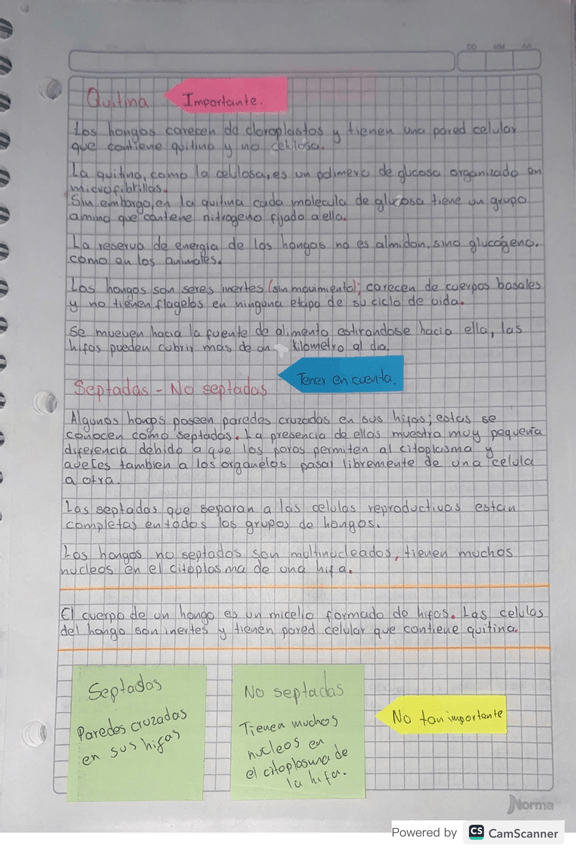 DD MM AA
Quitina
Importante.
Los hongos carecen de cloroplastos y tienen una pared celular
que contiene quitina y no celulosa.
La quitina, como la celulosa, es un polimero de glucosa organizado en
microfibrillas.
Sin embargo, en la quitina cada molecula de glucosa tiene un grupo
amino que contiene nitrogeno fijado a ella.
La reserva de energia de los hongos no es almidon, sino glucógeno,
como en los animales.
Los hongos son seres inertes (sin movimiento); carecen de cuerpos basales
y no tienen flagelos en ninguna etapa de su ciclo de vida.
Se mueven hacia la fuente de alimento estirandose hacia ella, las
hifas pueden cubrir mas de un kilometro al dia.
Tener en cuenta.
Septadas - No septadas
Algunos hongos poseen paredes cruzadas en sus hifas; estas se
conocen como septadas. La presencia de ellas muestra muy pequeña
diferencia debido a que los poros permiten al citoplasma y
aveces tambien a los organelos pasar libremente de una celula
a otra.
Las septadas que separan a las celulas reproductivas estan
completas en todos los grupos de hongos.
Los hongos no septados son multinucleados, tienen muchos
nucleos en el citoplasma de una hifa.
El cuerpo de un hongo es un micelio formado de hifas. Las celulas
del hongo son inertes y tienen pared celular que contiene quitina.
Septadas
Paredes cruzadas
en sus hifas
No septadas
Tienen muchos
nucleos en
el citoplasma de
la hifa.
No tan importante
Norma
Powered by CS CamScanner